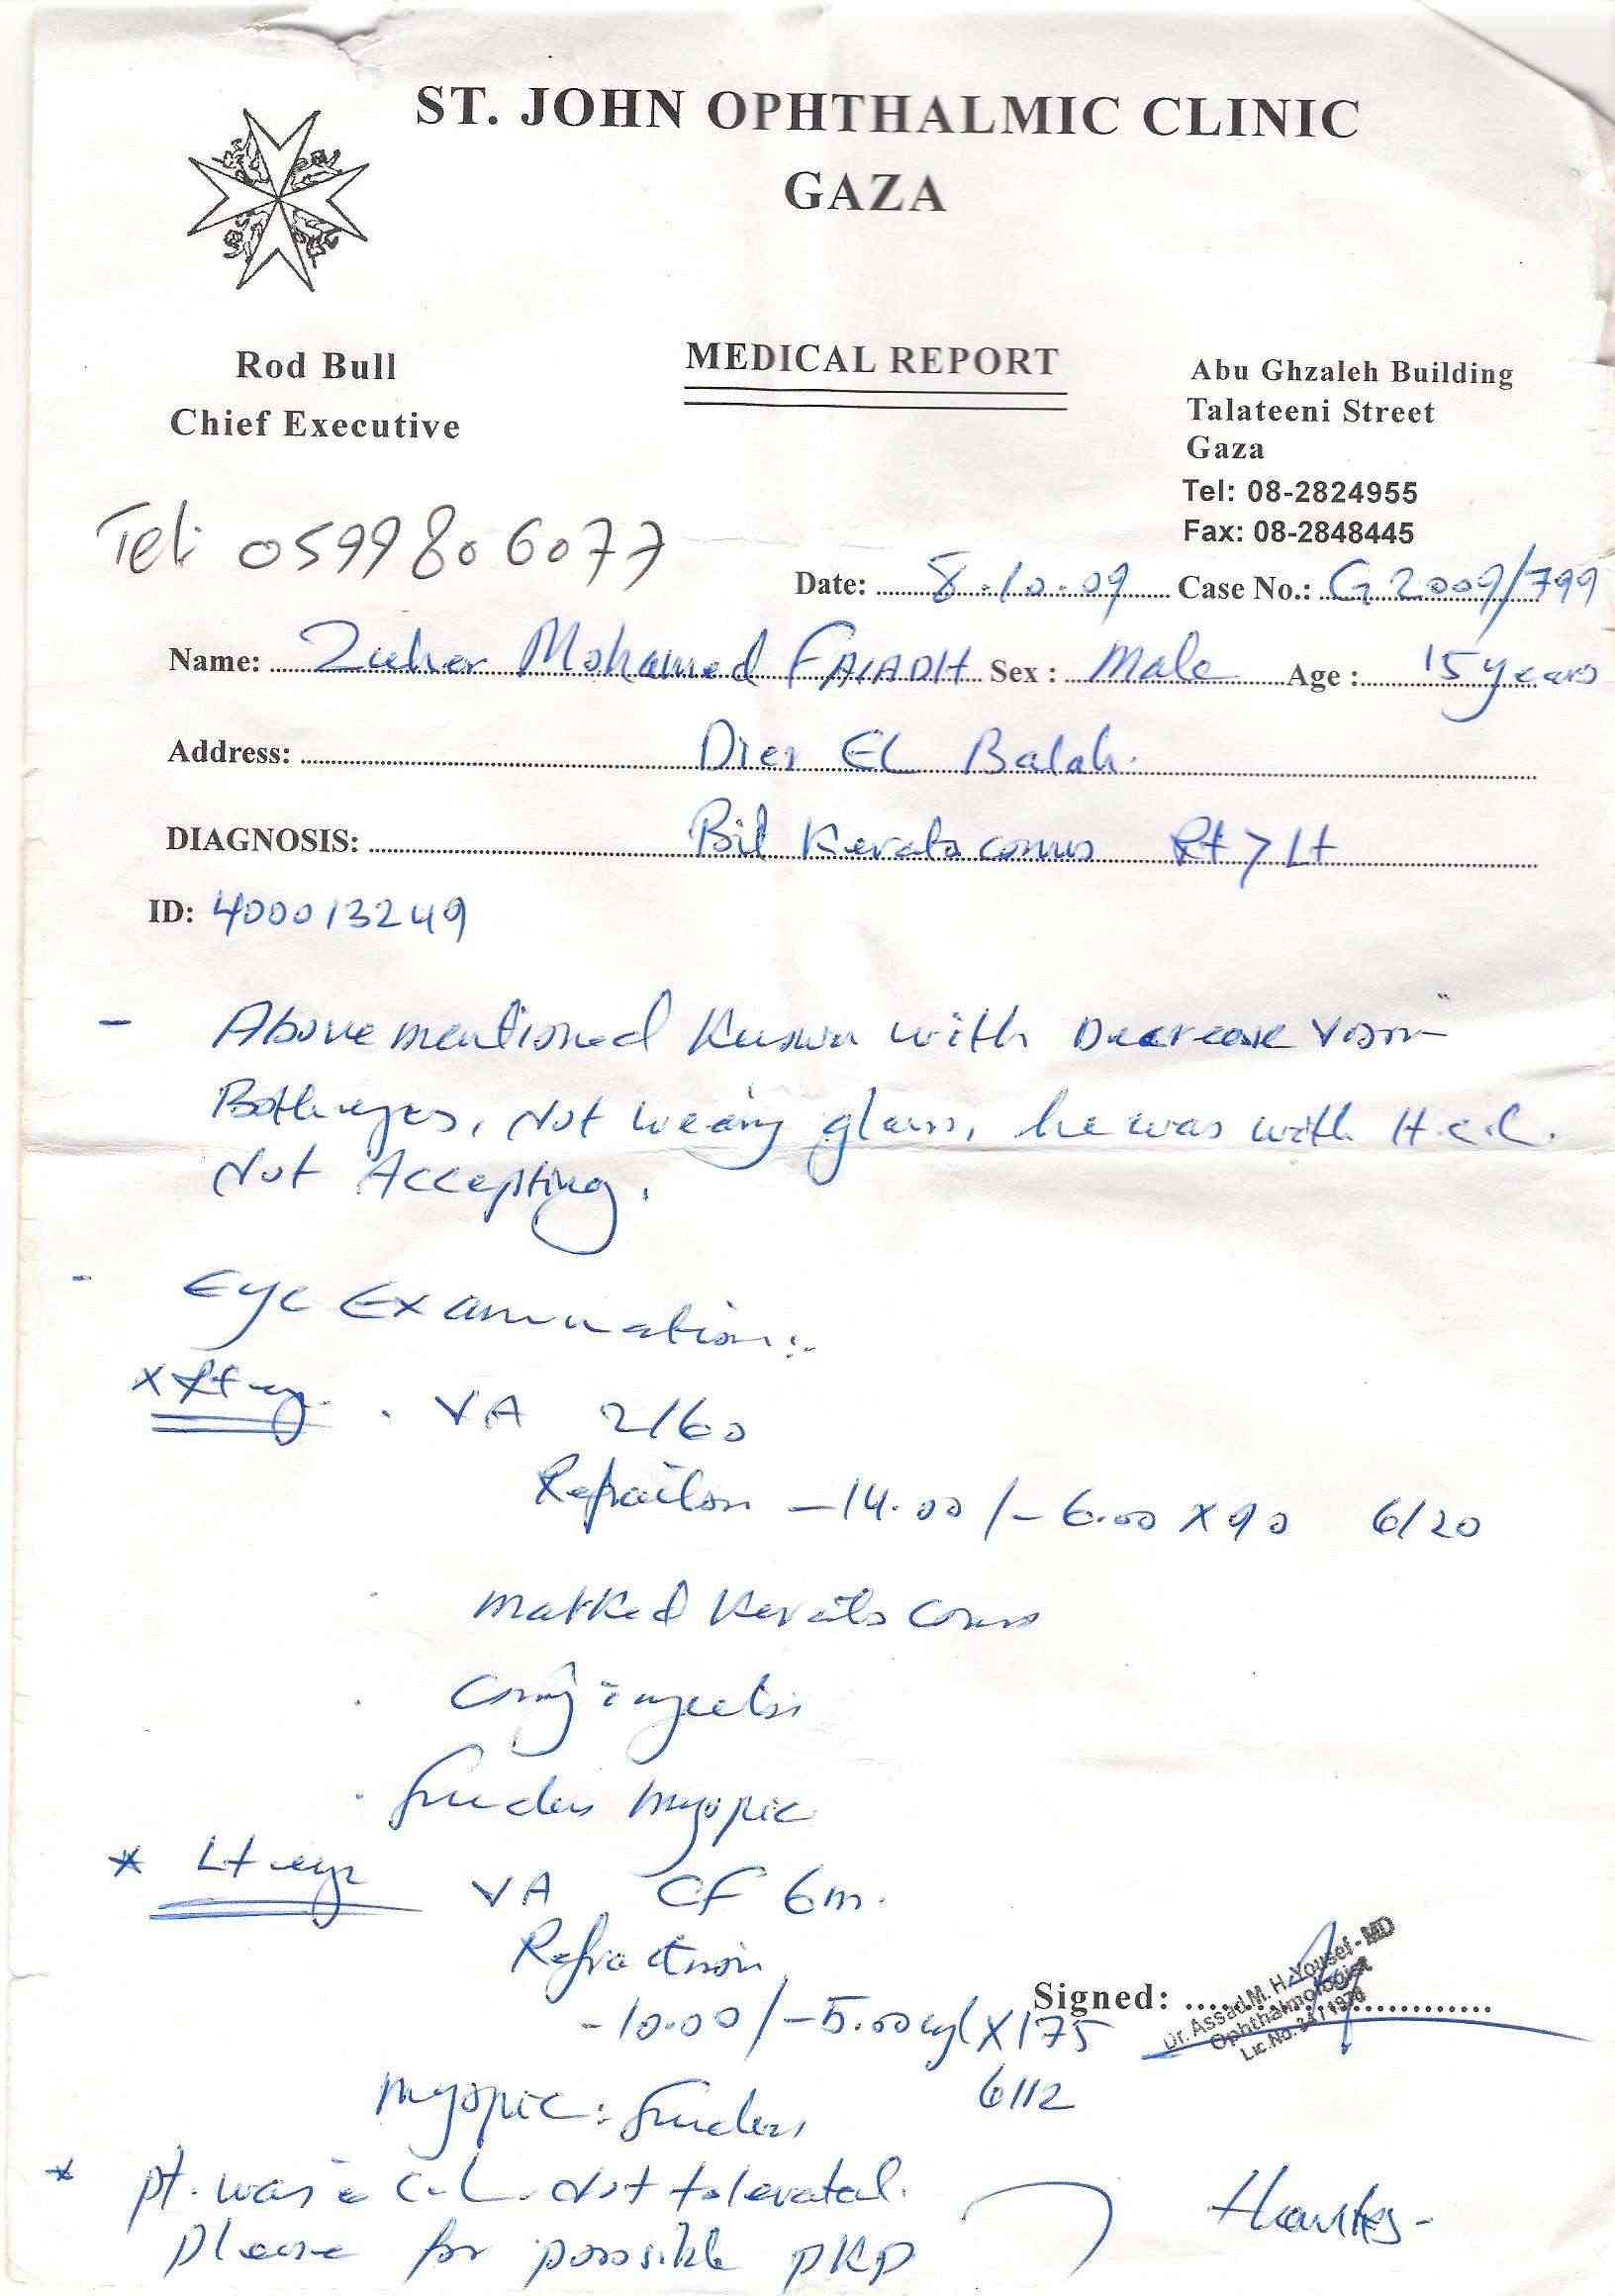 ST. JOHN OPHTHALMIC CLINIC
GAZA
Rod Bull
Chief Executive
MEDICAL REPORT
Abu Ghzaleh Building
Talateeni Street
Gaza
Tel: 08-2824955
Fax: 08-2848445
Tel: 0599806077
Date: 8.10.09 Case No.: G2009/799
Name: Zuher Mohamed FAIADH Sex : Male Age : 15 years
Address: Dier EL Balah.
DIAGNOSIS: Bil Keratoconus Rt > Lt
ID: 400013249
- Above mentioned Known with Decrease Vision
Both eyes, Not wearing glass, he was with H.c.L.
Not Accepting.
- Eye Examination:-
x Rt ey. . VA 2/60
Refraction -14.00/-6.00 X 90 6/20
marked Keratoconus
. Conj injection
. fundus myopic
* Lt eye VA CF 6m.
Refraction
-10.00/-5.00 cyl X 175
6/12
Signed:
Dr. Assad M. H. Yousef - MD
Ophthalmologist
Lic. No.
myopic: fundus
* pt. was c̄ C.L. Not toleratal.
please for possible PKP
thanks-